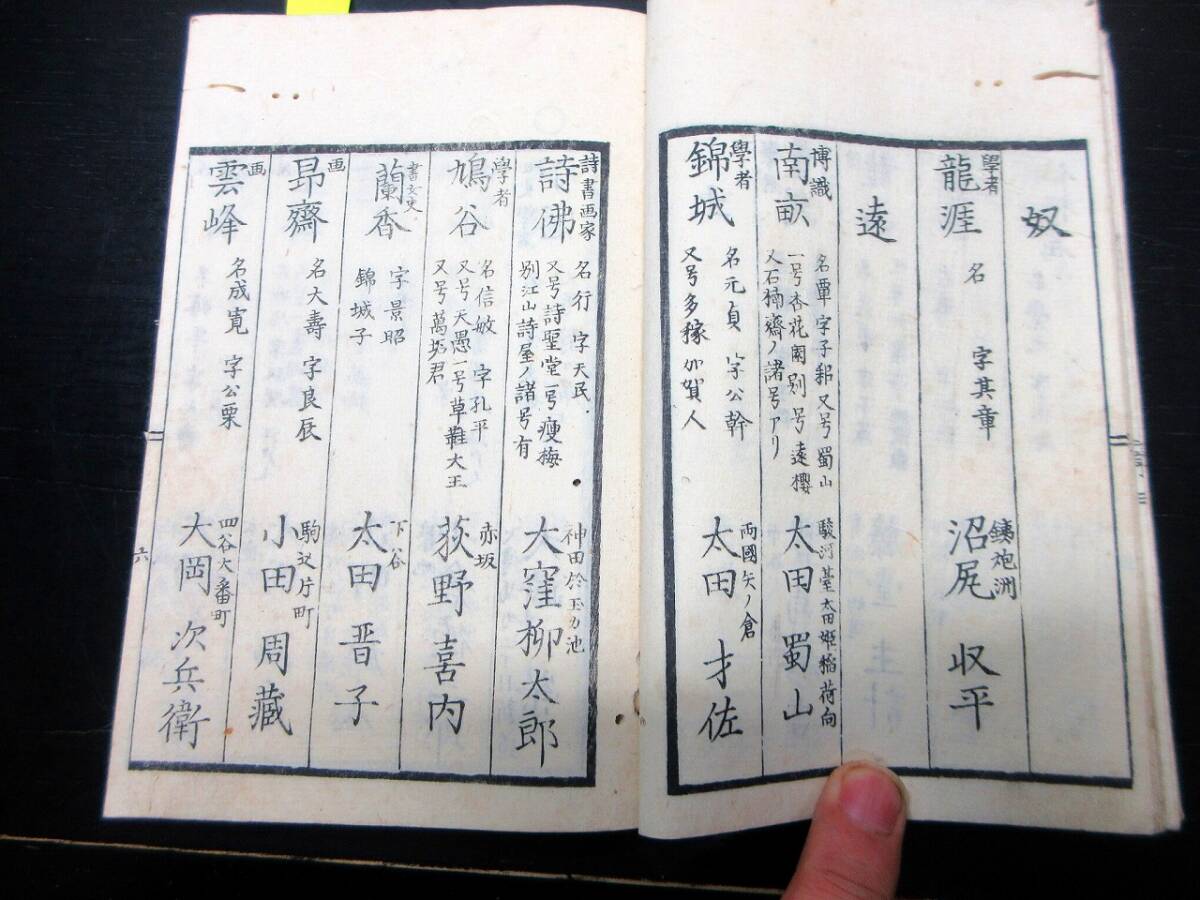 奴
學者
龍涯 名 字其章
鉄炮洲
沼尻 収平
遠
博識
南畝 名覃 字子耜 又号蜀山
一号杏花園 別号遠櫻
又石楠齋ノ諸号アリ
駿河臺太田姫稲荷向
太田 蜀山
學者
錦城 名元貞 字公幹
又号多稼 加賀人
両國矢ノ倉
太田 才佐
詩書画家
詩佛 名行 字天民
又号詩聖堂 一号瘦梅
別江山詩屋ノ諸号有
神田於玉カ池
大窪柳太郎
學者
鳩谷 名信敏 字孔平
又号天愚 一号草鞋大王
又号萬垢君
赤坂
荻野 喜内
蘭香 字景昭
錦城子
下谷
太田 晋子
画
昴齋 名大壽 字良辰
駒込片町
小田 周藏
画
雲峰 名成寛 字公栗
四谷大番町
大岡 次兵衛
六